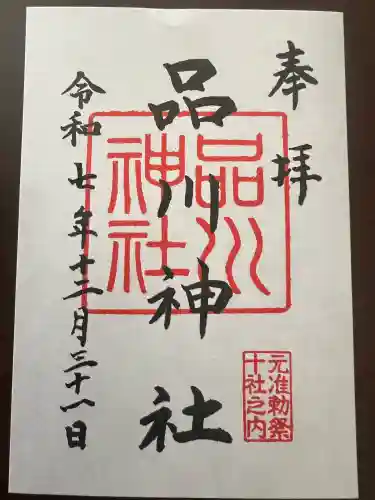 奉拝
品川神社
品川
神社
元准勅祭
十社之内
令和七年十二月三十一日